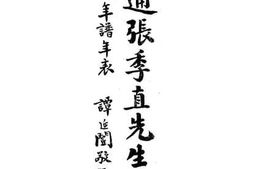 通張季直先生
年譜年表 譚延闓敬